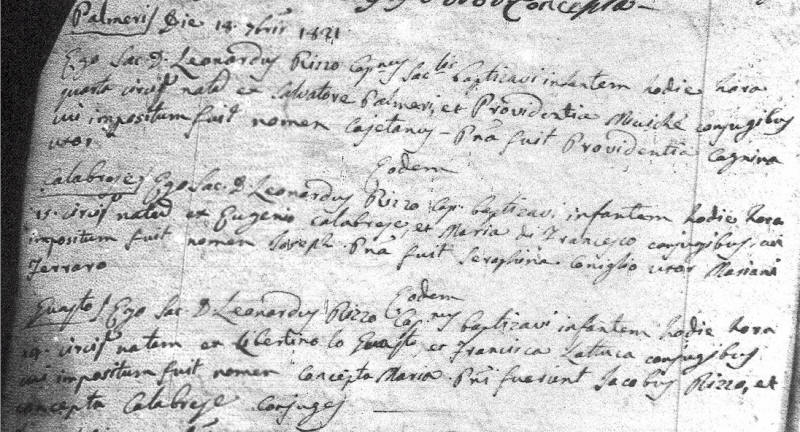 Concepta
Palmeri Die 18. 7bris 1821
Ego Sac. D. Leonardus Rizzo Cap.nus Sac.lis baptizavi infantem hodie hora
quarta circiter natum ex Salvatore Palmeri, et Providentia Muschè conjugibus
cui impositum fuit nomen Cajetanus - Pna fuit Providentia Cagnina
uxor
Eodem
Calabrese Ego Sac. D. Leonardus Rizzo Cap. baptizavi infantem hodie hora
15. circiter natum ex Eugenio Calabrese, et Maria di Francesco conjugibus, cui
impositum fuit nomen Joseph. Pna fuit Seraphina Coniglio uxor Mariani
Ferraro
Eodem
Guasto Ego Sac. D. Leonardus Rizzo Cap.nus baptizavi infantem hodie hora
19. circiter natam ex Libertino lo Guasto, et Francisca Lattuca conjugibus
cui impositum fuit nomen Concepta Maria. Pni fuerunt Jacobus Rizzo, et
Concepta Calabrese conjuges